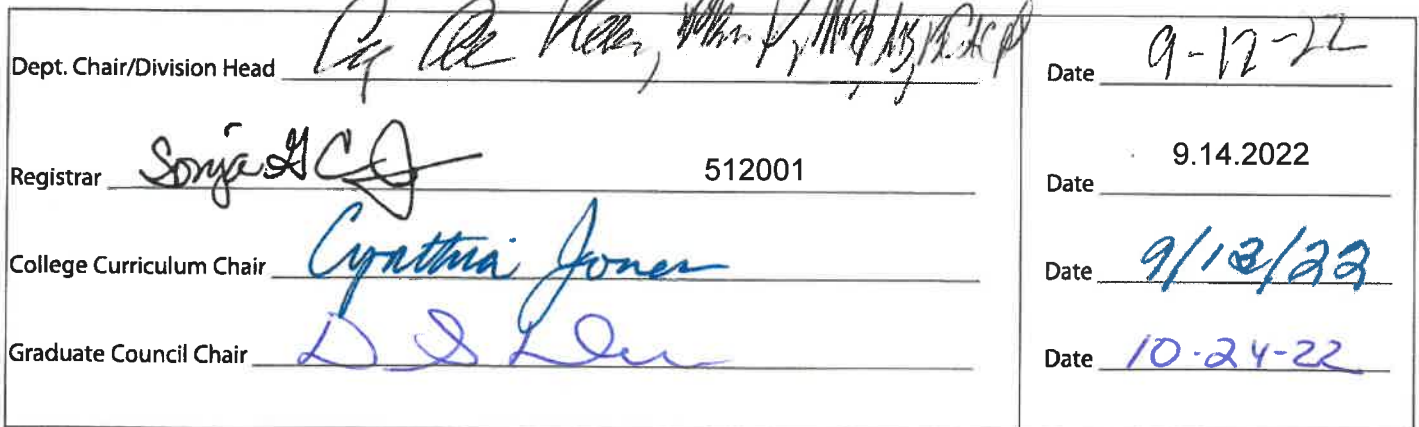 Dept. Chair/Division Head Date 9-12-22
Registrar Sonja G 512001 Date 9.14.2022
College Curriculum Chair Cynthia Jones Date
Graduate Council Chair Date 10-24-22